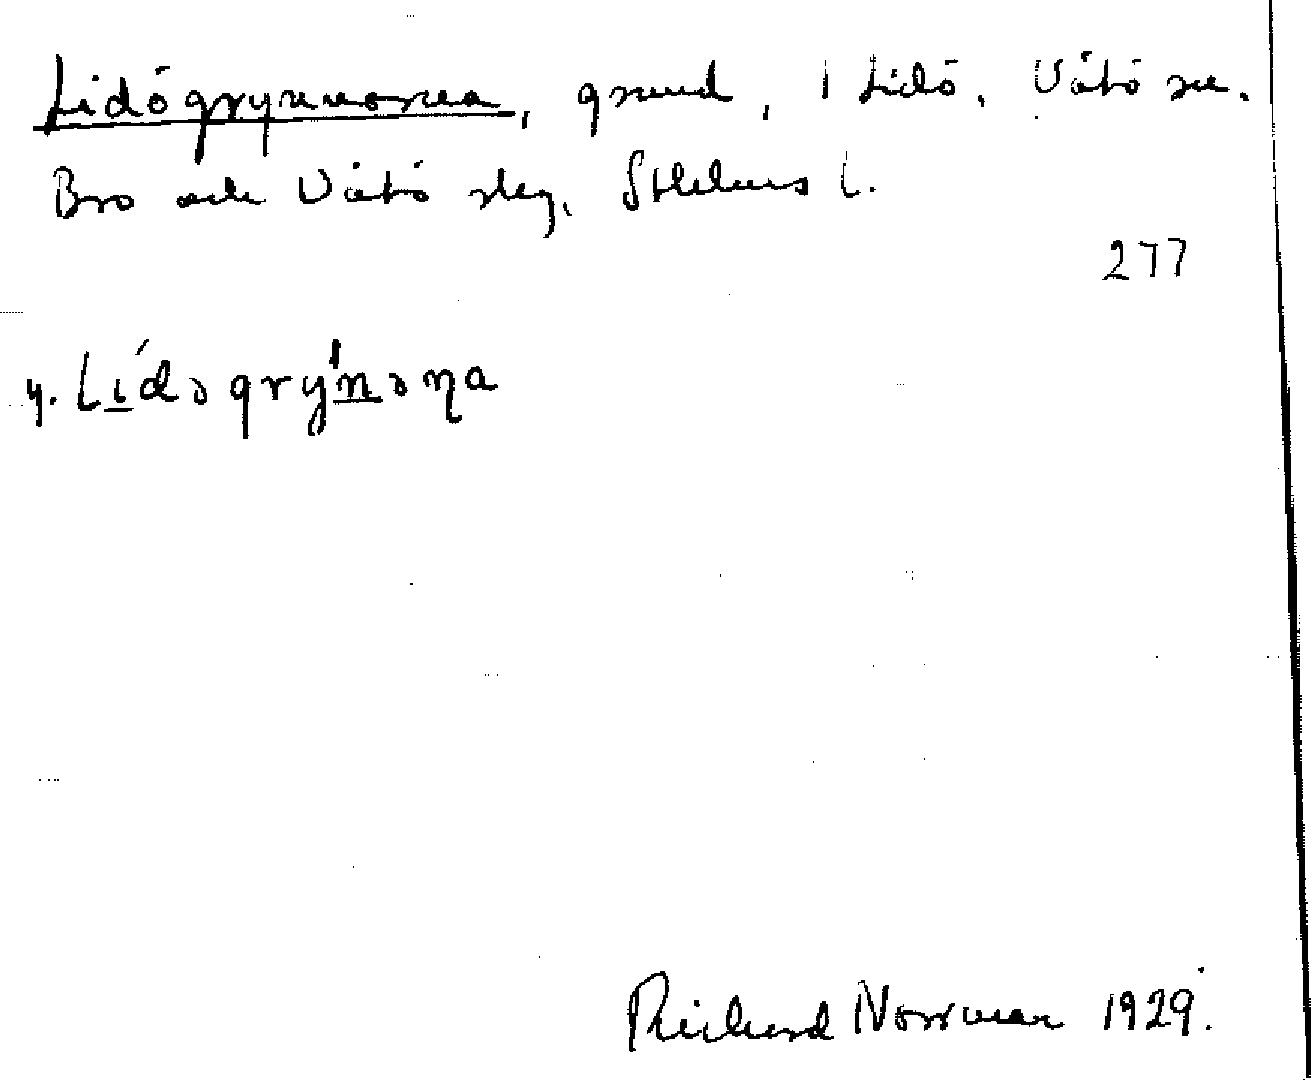 Lidögrynnorna, grund, i Lidö, Vätö sn.
Bro och Vätö skg, Sthlms l.
277
y. Lídəgrýnəṇa
Rickard Norrman 1929.